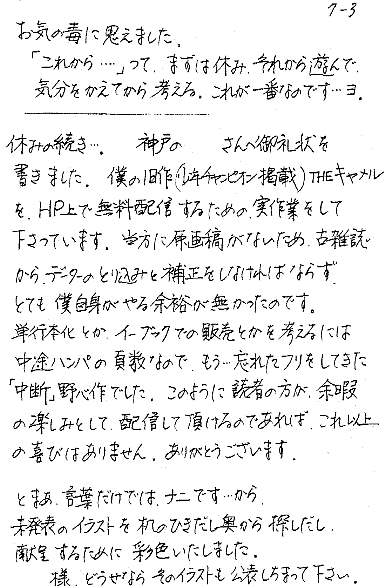 7-3
お気の毒に思えました。
「これから‥‥」って、まずは休み、それから遊んで、
気分をかえてから考える。これが一番なのです‥ヨ。
休みの続き‥。 神戸の さんへ御礼状を
書きました。僕の旧作(少年チャンピオン掲載)THEキャメル
を、HP上で無料配信するための実作業をして
下さっています。当方に原画稿がないため、古雑誌
からデーターのとり込みと補正をしなければならず、
とても僕自身がやる余裕が無かったのです。
単行本化とか、イーブックでの販売とかを考えるには
中途ハンパの頁数なので、もう‥忘れたフリをしてきた
「中断」野心作でした。このように読者の方が、余暇
の楽しみとして、配信して頂けるのであれば、これ以上
の喜びはありません。ありがとうございます。
とまぁ、言葉だけでは、ナニです‥から、
未発表のイラストを机のひきだし奥から探しだし、
献呈するために彩色いたしました。
様、どうせなら そのイラストも公表しちまって下さい。